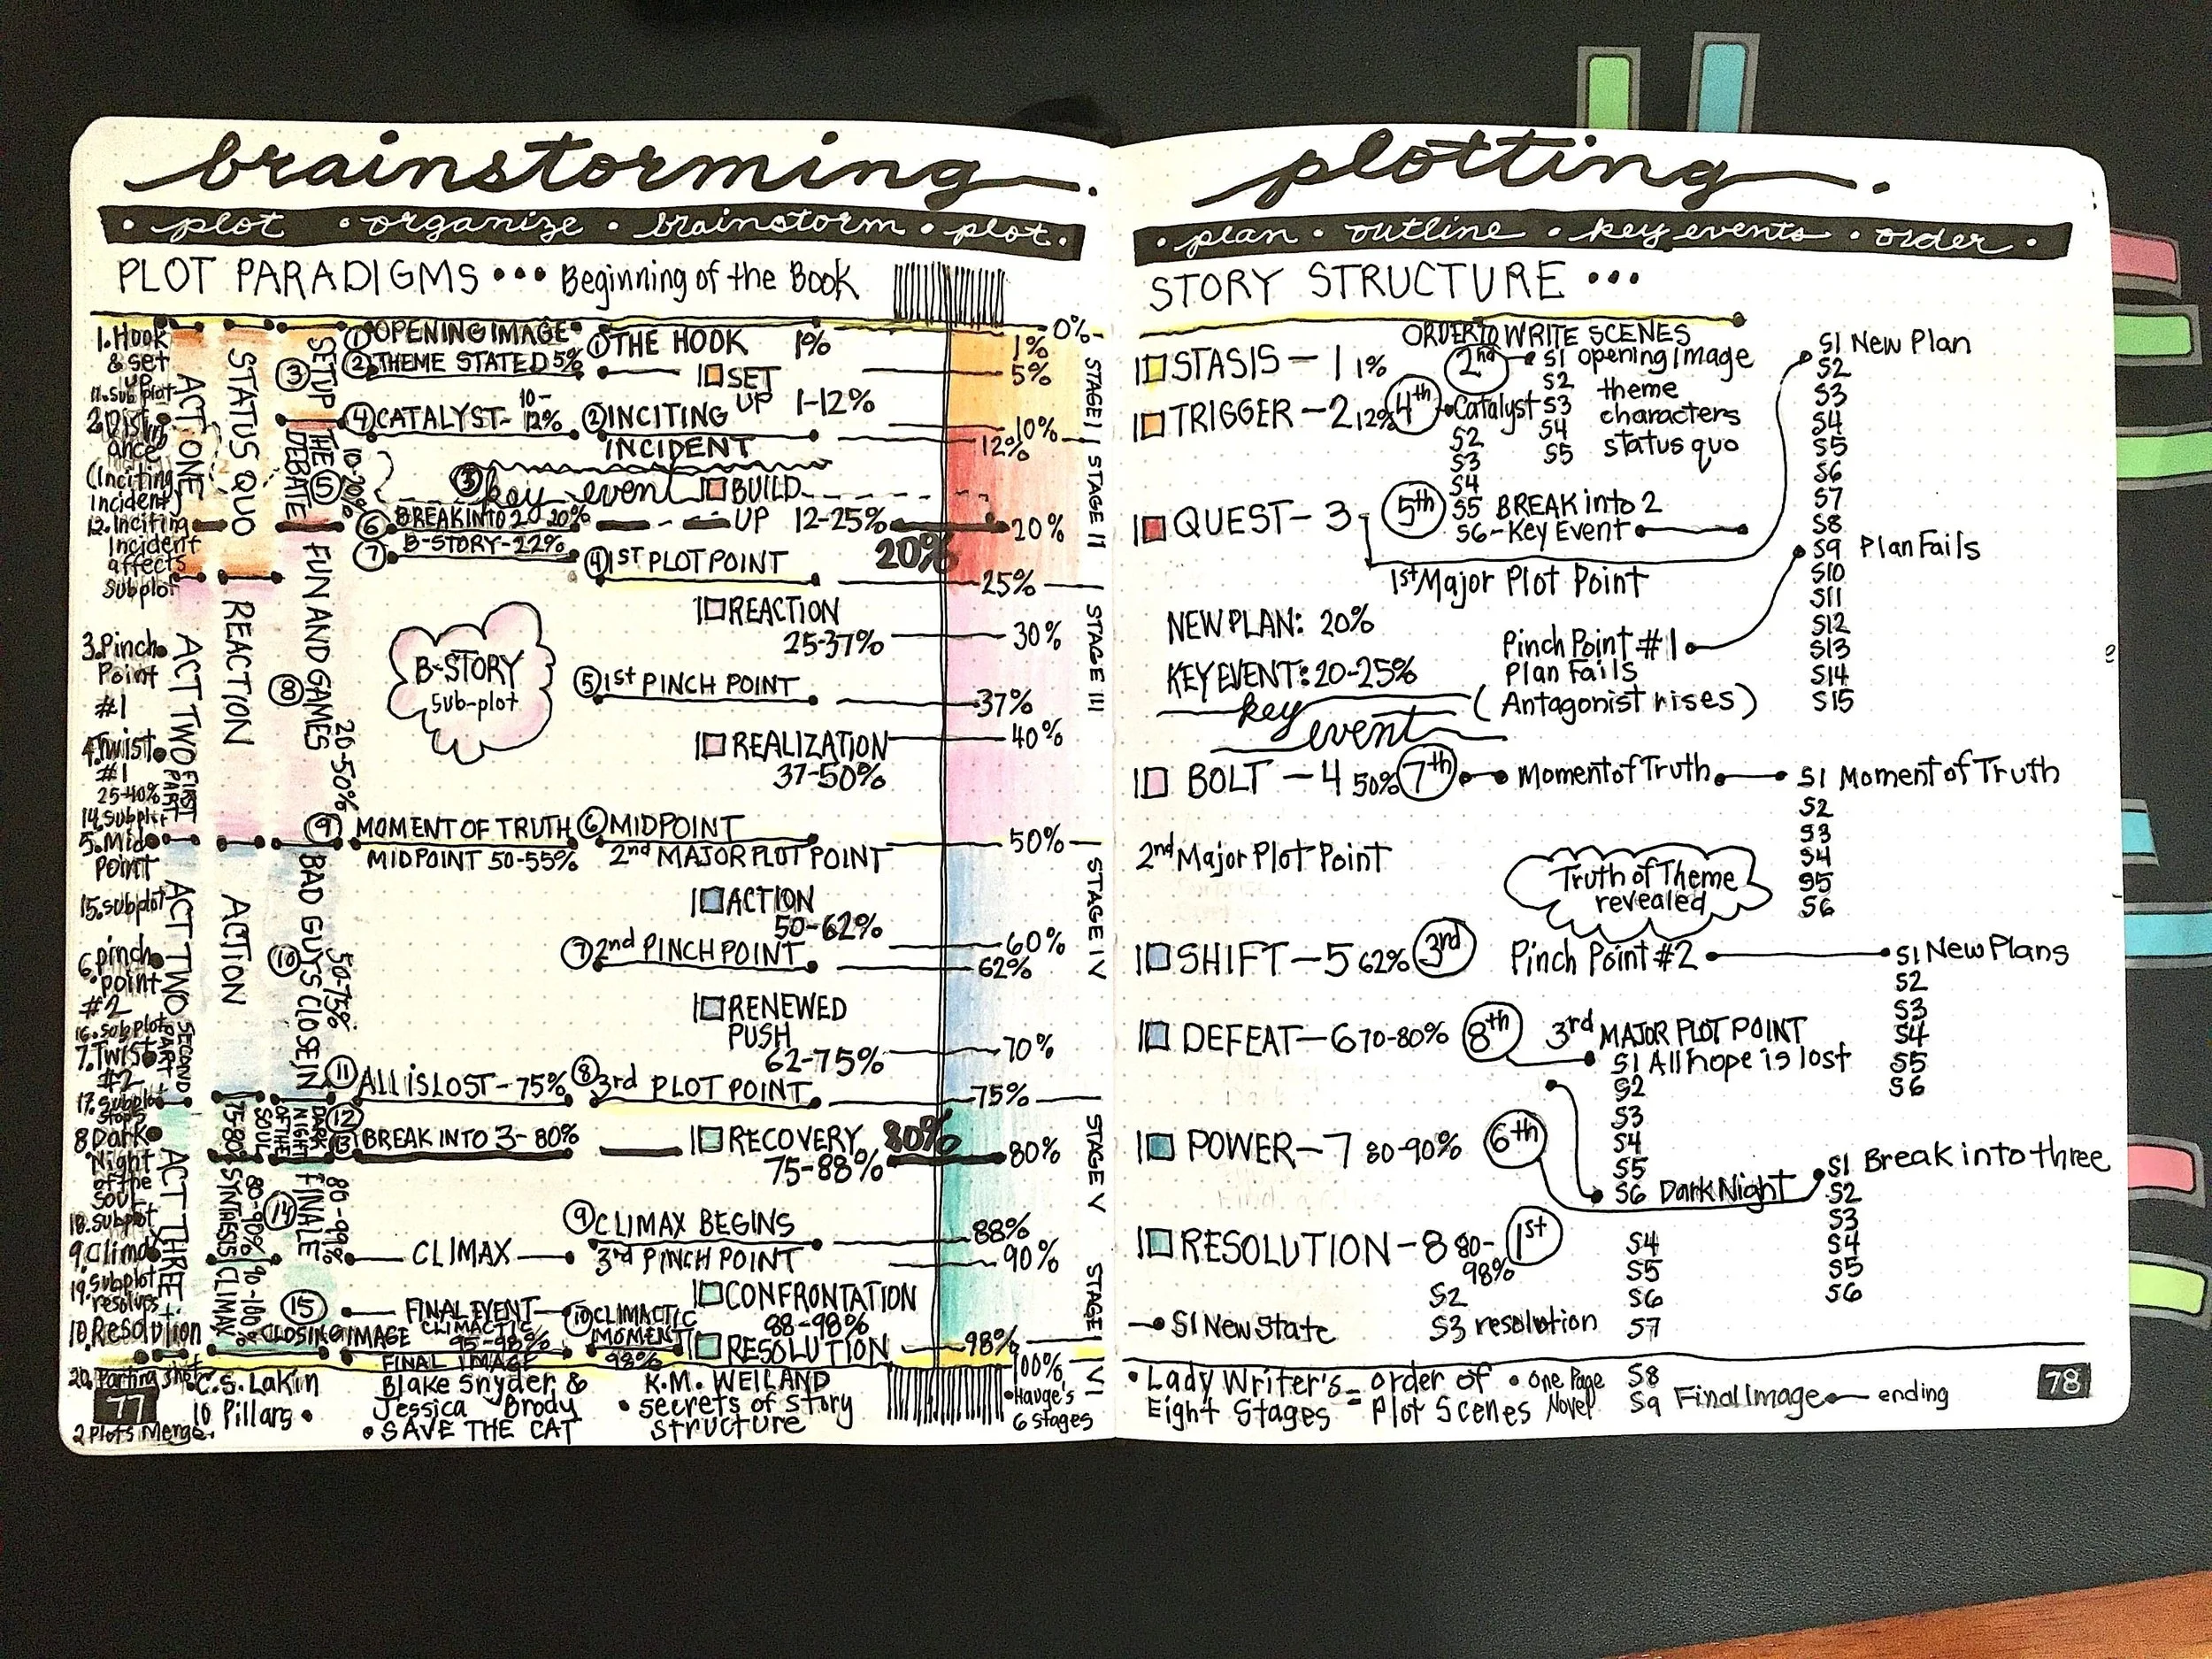 brainstorming
• plot • organize • brainstorm • plot.
PLOT PARADIGMS ••• Beginning of the Book
1. Hook
& set
up
11. Subplot
2. Disturb
ance
(Inciting
Incident)
12. Inciting
Incident
affects
Subplot
3. Pinch
Point
#1
4. Twist
#1
25-40%
14. Subplot
5. Mid
Point
15. subplot
6. pinch
point
#2
16. subplot
7. Twist
#2
17. Subplot
8 Dark
Night
of the
soul
18. subplot
9. Climax
19. Subplot
resolves
10. Resolution
20. Parting shot
2 Plots Merge.
ACT ONE
ACT TWO FIRST PART
ACT TWO SECOND PART
ACT THREE
STATUS QUO
REACTION
ACTION
75-80%
SYNTHESIS 80-90%
CLIMAX 90-100%
③ SETUP
THE DEBATE ⑤ 10-20%
FUN AND GAMES ⑧ 20-50%
BAD GUYS CLOSE IN ⑩ 50-75%
DARK NIGHT OF THE SOUL
FINALE ⑭ 80-99%
① OPENING IMAGE
② THEME STATED 5%
④ CATALYST- 10-12%
⑥ BREAK INTO 2 20%
⑦ B-STORY-22%
B-STORY
Sub-plot
⑨ MOMENT OF TRUTH
MIDPOINT 50-55%
⑪ ALL IS LOST-75%
⑫
⑬ BREAK INTO 3-80%
CLIMAX
⑮ FINAL EVENT
CLIMACTIC
CLOSING IMAGE 95-98%
FINAL IMAGE
① THE HOOK 1%
SET UP 1-12%
② INCITING
INCIDENT
③ key event
BUILD
UP 12-25%
20%
④ 1st PLOT POINT
REACTION
25-37%
⑤ 1st PINCH POINT
REALIZATION
37-50%
⑥ MIDPOINT
2nd MAJOR PLOT POINT
ACTION
50-62%
⑦ 2nd PINCH POINT
RENEWED
PUSH
62-75%
⑧ 3rd PLOT POINT
RECOVERY 80%
75-88%
⑨ CLIMAX BEGINS
3rd PINCH POINT
CONFRONTATION
88-98%
⑩ CLIMACTIC
MOMENT
98%
RESOLUTION
0%
1%
5%
10%
12%
20%
25%
30%
37%
40%
50%
60%
62%
70%
75%
80%
88%
90%
98%
100%
STAGE I
STAGE II
STAGE III
STAGE IV
STAGE V
STAGE VI
77
C.S. Lakin
10 Pillars •
Blake Snyder &
Jessica Brody
• SAVE THE CAT
K.M. WEILAND
• Secrets of Story
Structure
• Hauge's
6 stages
plotting
• plan • outline • key events • order •
STORY STRUCTURE •••
ORDER TO WRITE SCENES
STASIS - 1 1%
2nd S1 opening image
S2 theme
S3 characters
S4 status quo
S5
TRIGGER - 2 12% 4th Catalyst
S2
S3
S4
S5 BREAK into 2
S6 - Key Event
QUEST - 3 5th
1st Major Plot Point
S1 New Plan
S2
S3
S4
S5
S6
S7
S8
S9 Plan Fails
S10
S11
S12
S13
S14
S15
NEW PLAN: 20%
KEY EVENT: 20-25%
key
event
Pinch Point #1
Plan Fails
(Antagonist rises)
BOLT - 4 50% 7th Moment of Truth S1 Moment of Truth
S2
S3
S4
S5
S6
2nd Major Plot Point
Truth of Theme
revealed
SHIFT - 5 62% 3rd Pinch Point #2 S1 New Plans
S2
S3
S4
S5
S6
DEFEAT - 6 70-80% 8th 3rd MAJOR PLOT POINT
S1 All hope is lost
S2
S3
S4
S5
S6 Dark Night
POWER - 7 80-90% 6th
S1 Break into three
S2
S3
S4
S5
S6
RESOLUTION - 8 80-98% 1st
S1 New State
S2
S3 resolution
S4
S5
S6
S7
S8
S9 Final Image ending
• Lady Writer's
Eight Stages
= order of
Plot Scenes
• one Page
Novel
78